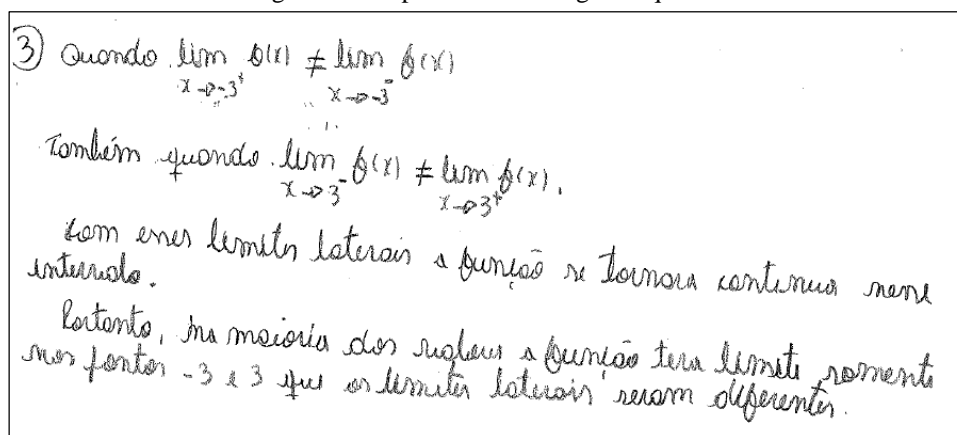 ③ Quando lim f(x) ≠ lim f(x)
x→-3⁺ x→-3⁻
Também quando lim f(x) ≠ lim f(x).
x→3⁻ x→3⁺
Com esses limites laterais a função se tornara continua nesse
intervalo.
Portanto, na maioria dos a função tera limite, somente
nos pontos -3 e 3 que os limites laterais seram diferentes.